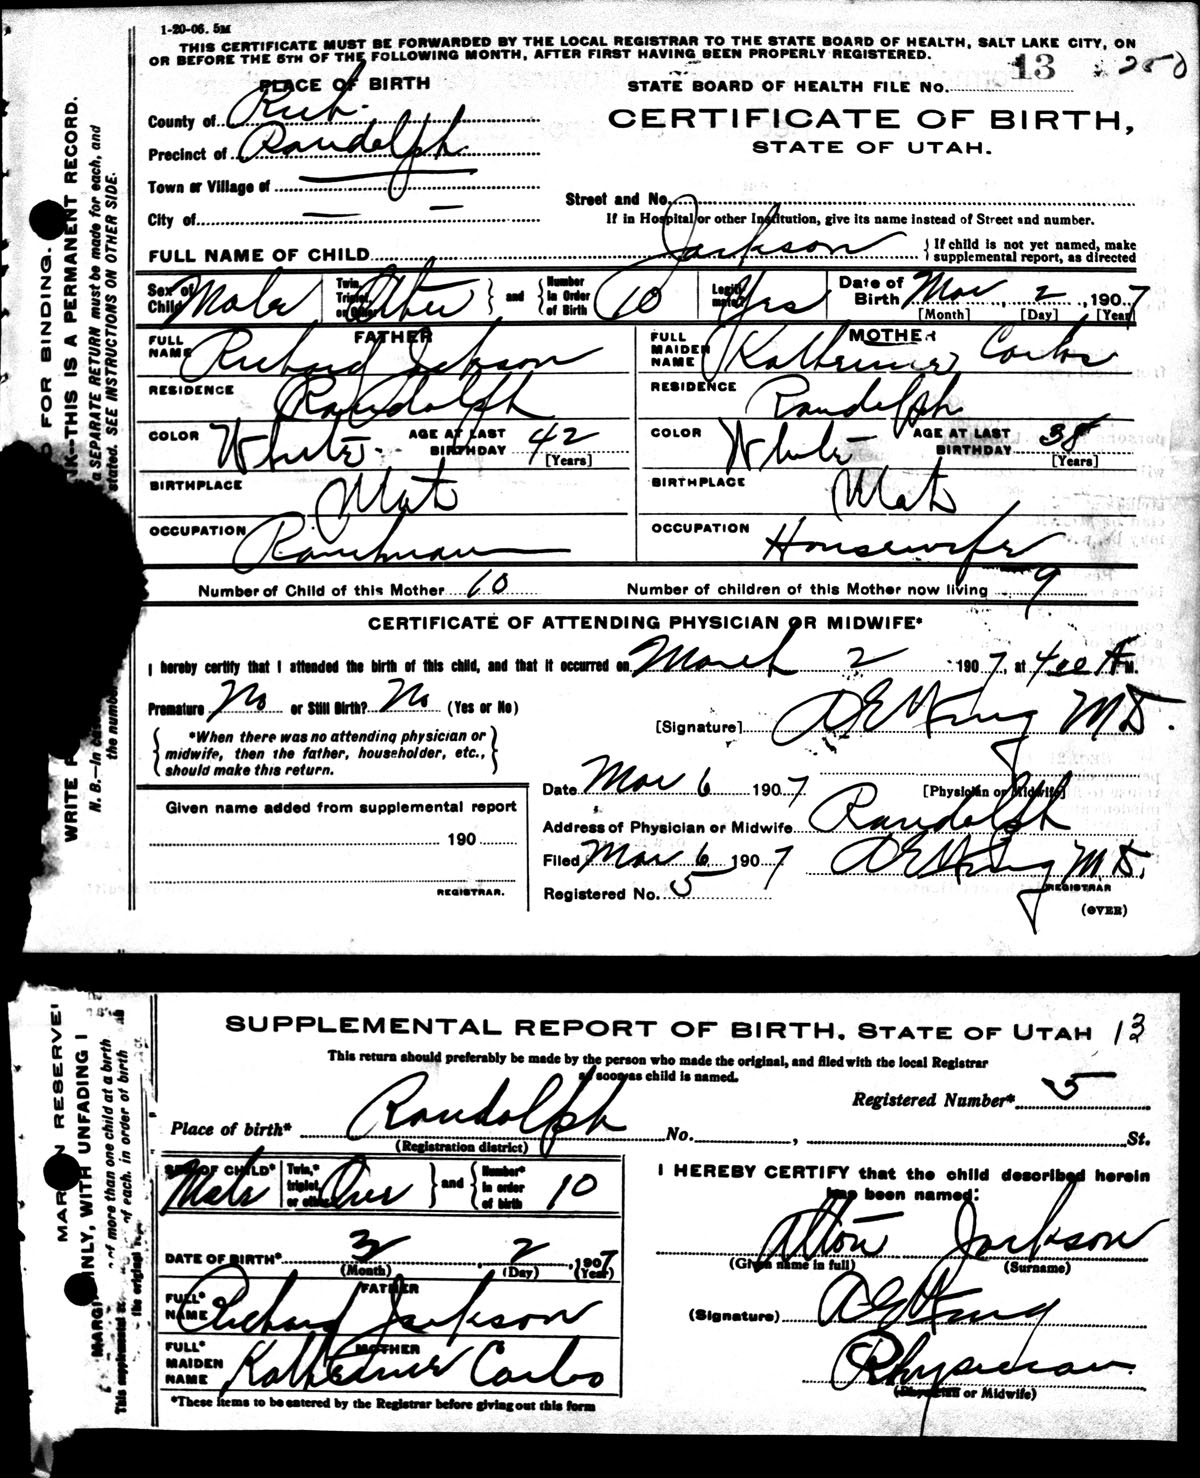 1-20-06. 5M
THIS CERTIFICATE MUST BE FORWARDED BY THE LOCAL REGISTRAR TO THE STATE BOARD OF HEALTH, SALT LAKE CITY, ON
OR BEFORE THE 5TH OF THE FOLLOWING MONTH, AFTER FIRST HAVING BEEN PROPERLY REGISTERED.
PLACE OF BIRTH
STATE BOARD OF HEALTH FILE NO. 13 250
County of Rich.
CERTIFICATE OF BIRTH,
Precinct of Randolph
STATE OF UTAH.
Town or Village of
Street and No.
City of
If in Hospital or other Institution, give its name instead of Street and number.
FULL NAME OF CHILD Jackson { If child is not yet named, make supplemental report, as directed
Sex of Child Male Twin, Triplet, or Other Other } and { Number in Order of Birth 10 Legitimate? Yes Date of Birth Mar 2, 1907
[Month] [Day] [Year]
FATHER
FULL NAME Richard Jackson
RESIDENCE Randolph
COLOR White AGE AT LAST BIRTHDAY 42 [Years]
BIRTHPLACE Utah
OCCUPATION Ranchman
MOTHER
FULL MAIDEN NAME Katherine
RESIDENCE Randolph
COLOR White AGE AT LAST BIRTHDAY 38 [Years]
BIRTHPLACE Utah
OCCUPATION Housewife
Number of Child of this Mother 10 Number of children of this Mother now living 9
CERTIFICATE OF ATTENDING PHYSICIAN OR MIDWIFE*
I hereby certify that I attended the birth of this child, and that it occurred on March 2 1907, at 4 00 A M.
Premature No or Still Birth? No (Yes or No)
[Signature] M D.
{ *When there was no attending physician or
midwife, then the father, householder, etc.,
should make this return. }
Date Mar 6 1907 [Physician or Midwife]
Given name added from supplemental report
190
REGISTRAR.
Address of Physician or Midwife Randolph
Filed Mar 6 1907 M. D.
Registered No. 5 REGISTRAR
(OVER)
SUPPLEMENTAL REPORT OF BIRTH, STATE OF UTAH 13
This return should preferably be made by the person who made the original, and filed with the local Registrar
as soon as child is named.
Registered Number* 5
Place of birth* Randolph No. , St.
(Registration district)
SEX OF CHILD* Male Twin,* triplet, or other One } and { Number* in order of birth 10
DATE OF BIRTH* 3 2, 1907
(Month) (Day) (Year)
FATHER
FULL* NAME Richard Jackson
MOTHER
FULL* MAIDEN NAME
*These items to be entered by the Registrar before giving out this form
I HEREBY CERTIFY that the child described herein
has been named:
Alton Jackson
(Given name in full) (Surname)
(Signature)
Physician
(Physician or Midwife)